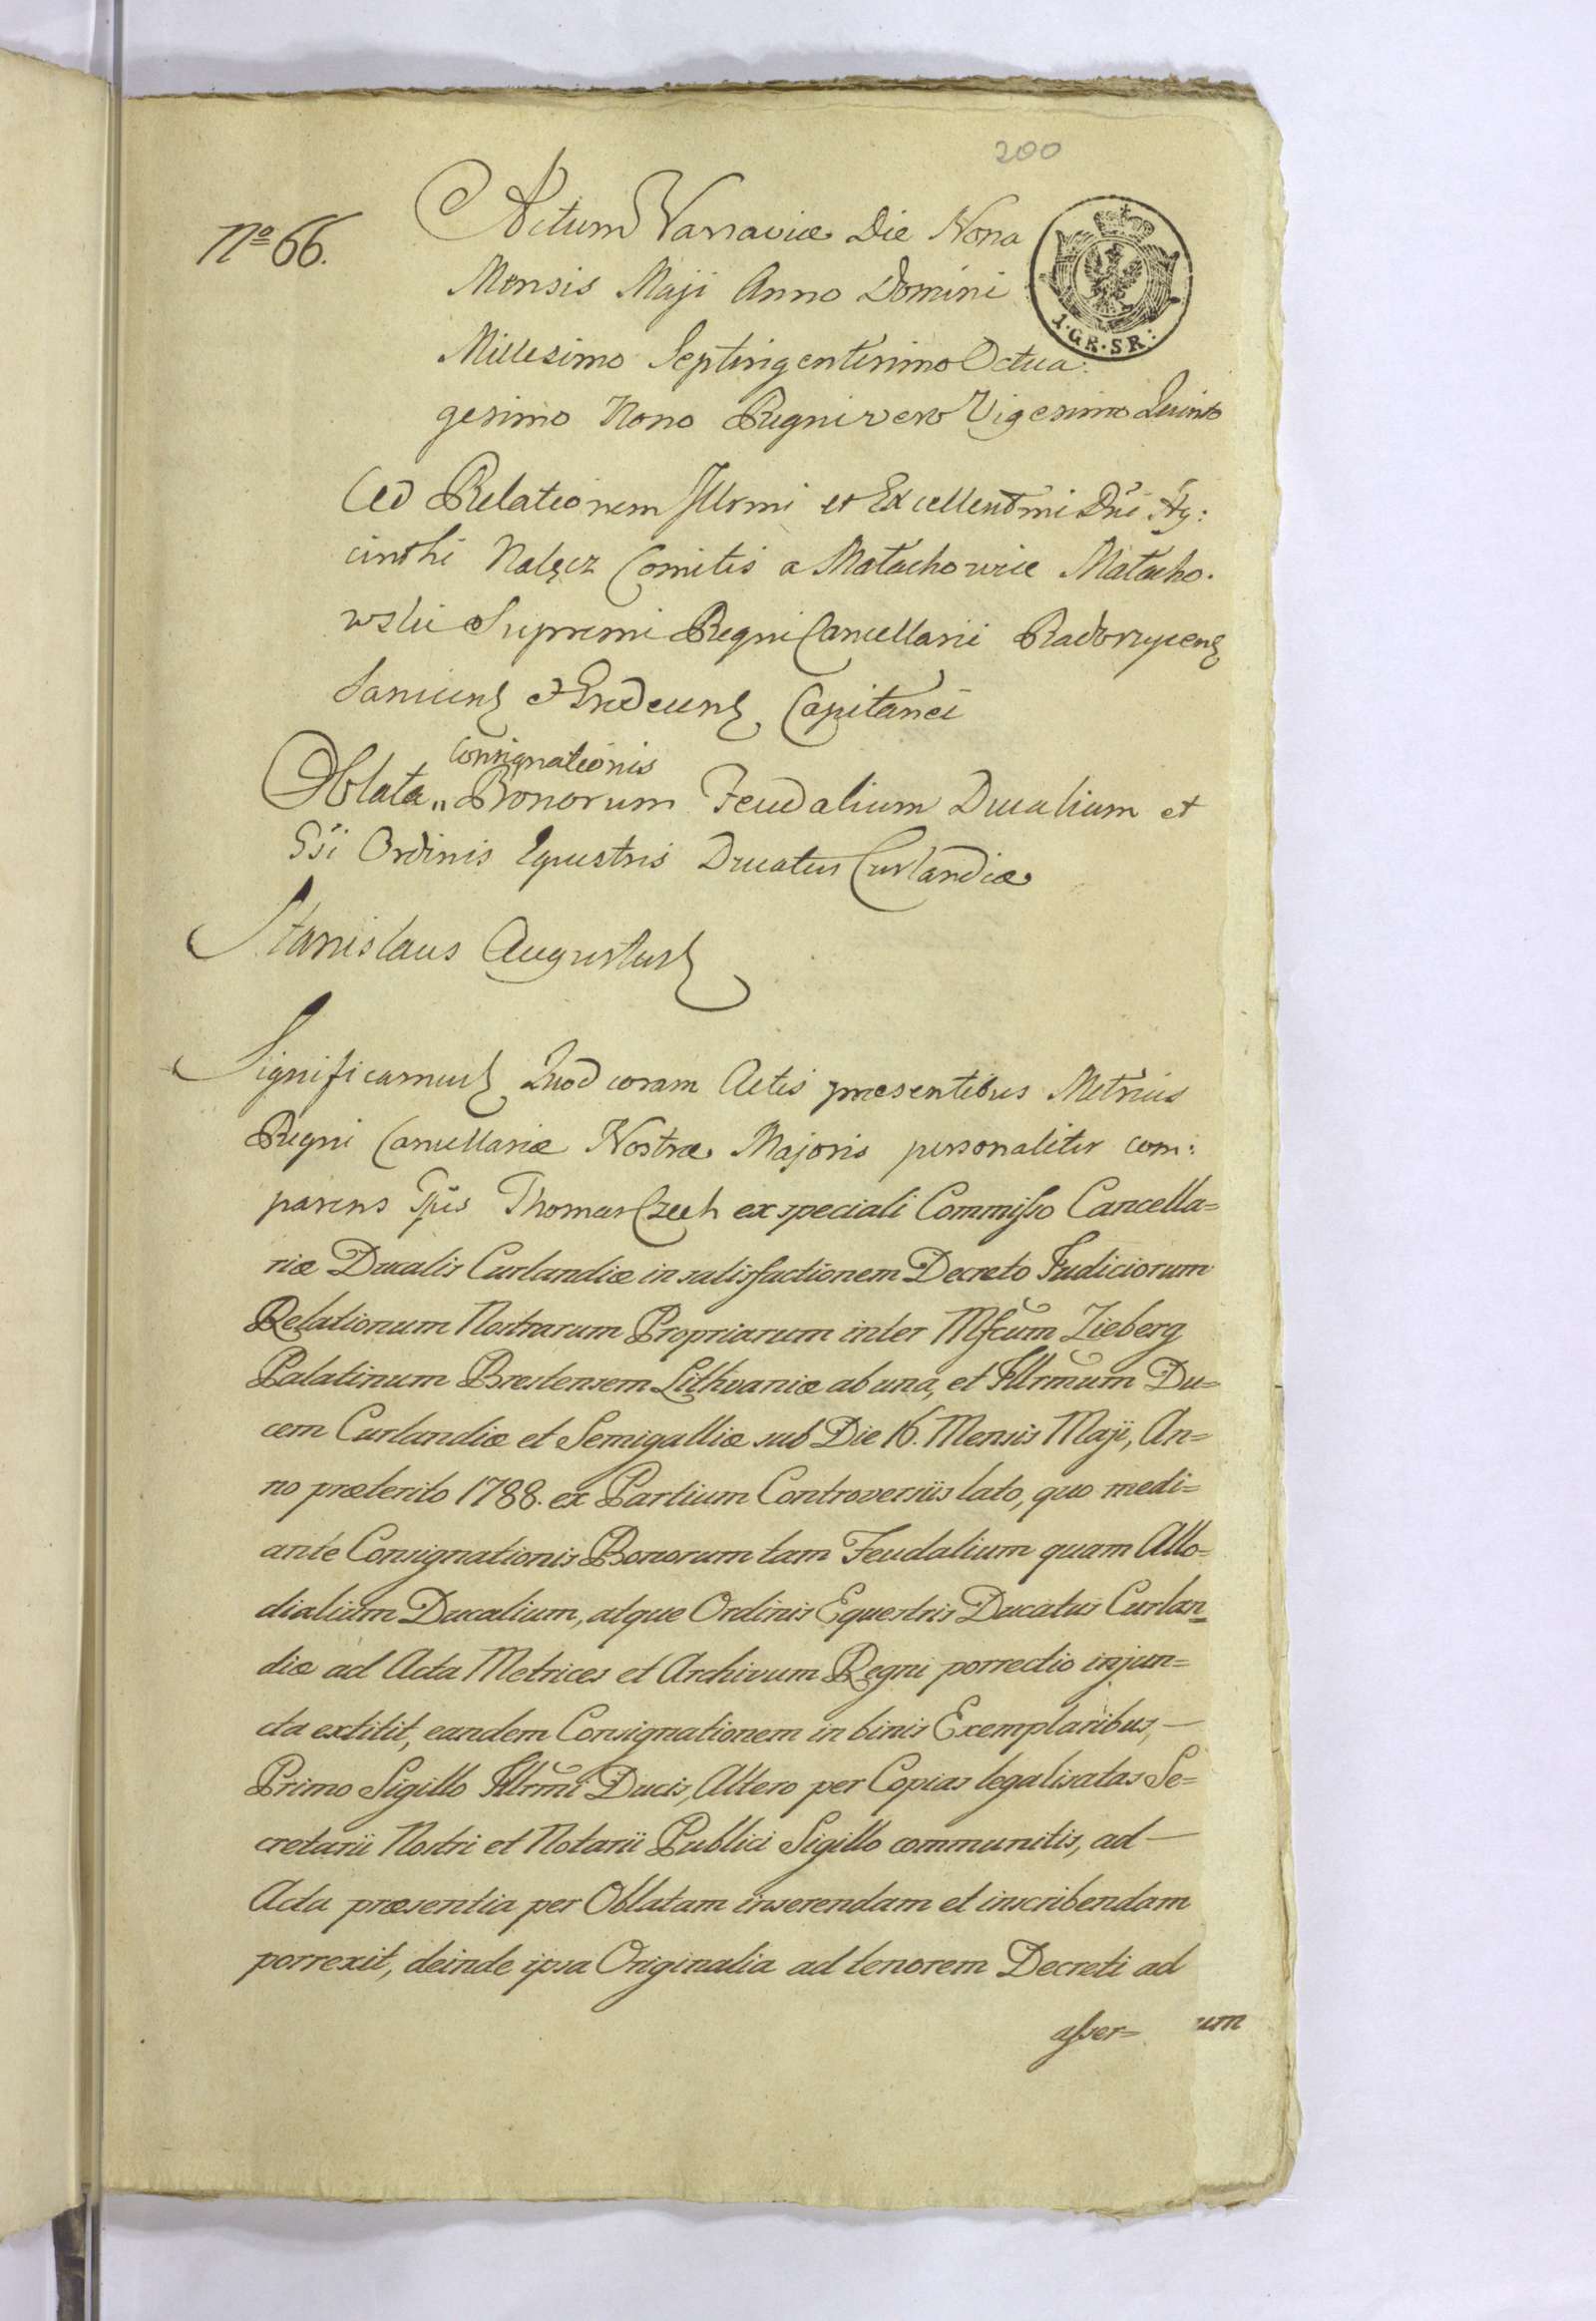 200
No 66.
Actum Varsaviæ Die Nona
Mensis Maji Anno Domini
1·GR·SR:
Millesimo Septingentesimo Octua:
gesimo Nono Regni vero Vigesimo Quinto
Ad Relationem Illrmi et Excellentmi Dni Hy:
cinthi Nałęcz Comitis a Małachowice Małacho.
wski Supremi Regni Cancellarii Radoszycens
Saniecens et Grodecens Capitanei
Consignationis
Oblata „ Bonorum Feudalium Ducalium et
Gsi Ordinis Equestris Ducatus Curlandiæ
Stanislaus Augustus
Significamus Quod coram Actis præsentibus Metrices
Regni Cancellariæ Nostræ Majoris personaliter com:
parens Thomas Czech ex speciali Commisso Cancella=
riæ Ducalis Curlandiæ in satisfactionem Decreto Judiciorum
Relationum Nostrarum Propriarum inter Mfcum Zieberg
Palatinum Brestensem Lithvaniæ ab una, et Illrmum Du=
cem Curlandiæ et Semigalliæ sub Die 16. Mensis Maji, An=
no præterito 1788. ex Partium Controversiis lato, quo medi=
ante Consignationis Bonorum tam Feudalium quam Allo=
dialium Ducalium, atque Ordinis Equestris Ducatus Curlan=
diæ ad Acta Metrices et Archivum Regni porrectio injun=
cta extitit, eandem Consignationem in binis Exemplaribus, —
Primo Sigillo Illrmi Ducis, Altero per Copias legalisatas Se=
cretarii Nostri et Notarii Publici Sigillo communitis, ad —
Acta præsentia per Oblatam inserendam et inscribendam
porrexit, deinde ipsa Originalia ad tenorem Decreti ad
asser= um